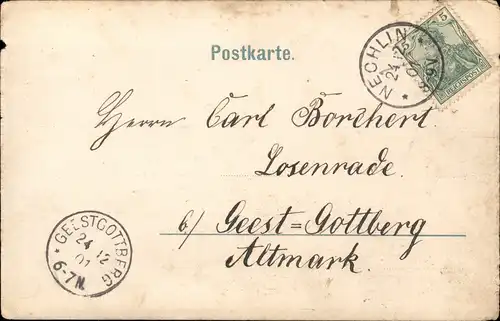 Postkarte.
NECHLIN
24 12
5
Herrn Carl Borchert.
Losenrade.
b/ Geest=Gottberg
Altmark.
* GEESTGOTTBERG
24 12
01
6-7N.